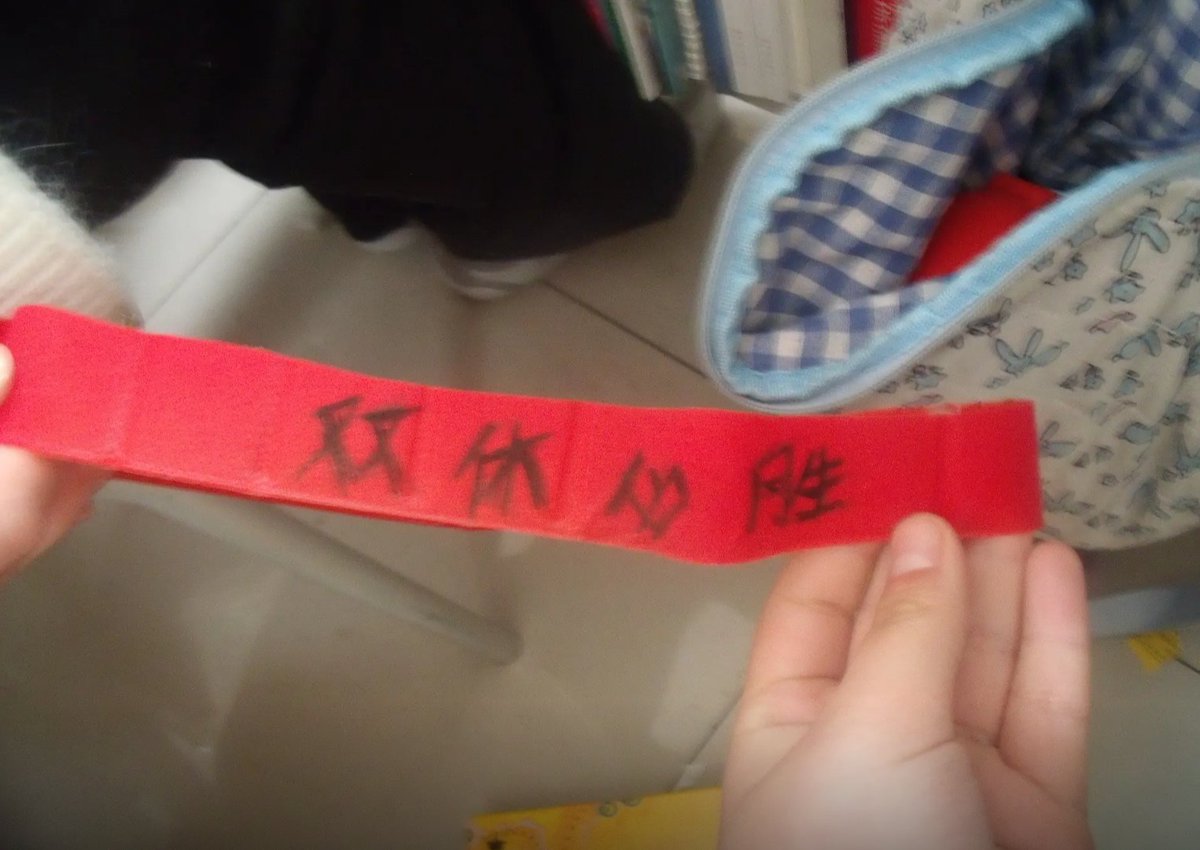 双休必胜